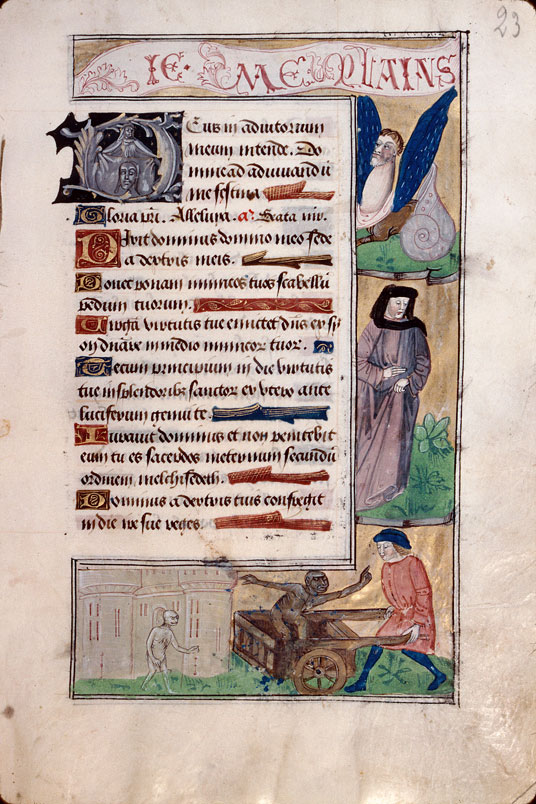 23
IE · ME PLAINS
Deus in adiutorium
meum intende. Do
mine ad adiuuandū
me festina
Gloria pri. Alleluya. aͣ. Beata vir.
Dixit dominus domino meo sede
a dextris meis.
Donec ponam inimicos tuos scabellū
pedum tuorum.
Virgā virtutis tue emittet dns ex sy
on dnāre in medio inimicor tuor.
Tecum principium in die virtutis
tue in splendoribꝫ sanctor ex vtero ante
luciferum genui te.
Iurauit dominus et non penitebit
eum tu es sacerdos in eternum secundū
ordinem melchisedeth.
Dominus a dextris tuis confregit
in die ire sue reges.